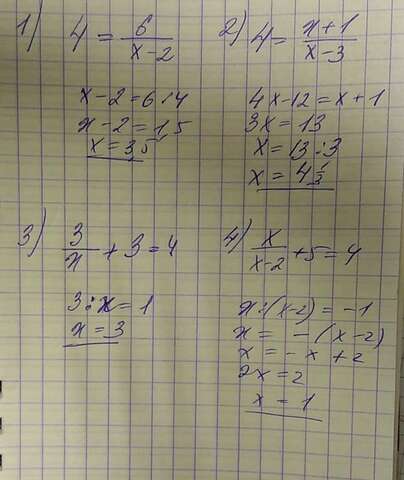 1) 4 = 6/(x-2)
x-2 = 6:4
x-2 = 1,5
x = 3,5
2) 4 = (x+1)/(x-3)
4x-12 = x+1
3x = 13
x = 13:3
x = 4 1/3
3) 3/x + 3 = 4
3:x = 1
x = 3
4) x/(x-2) + 5 = 4
x:(x-2) = -1
x = -(x-2)
x = -x+2
2x = 2
x = 1